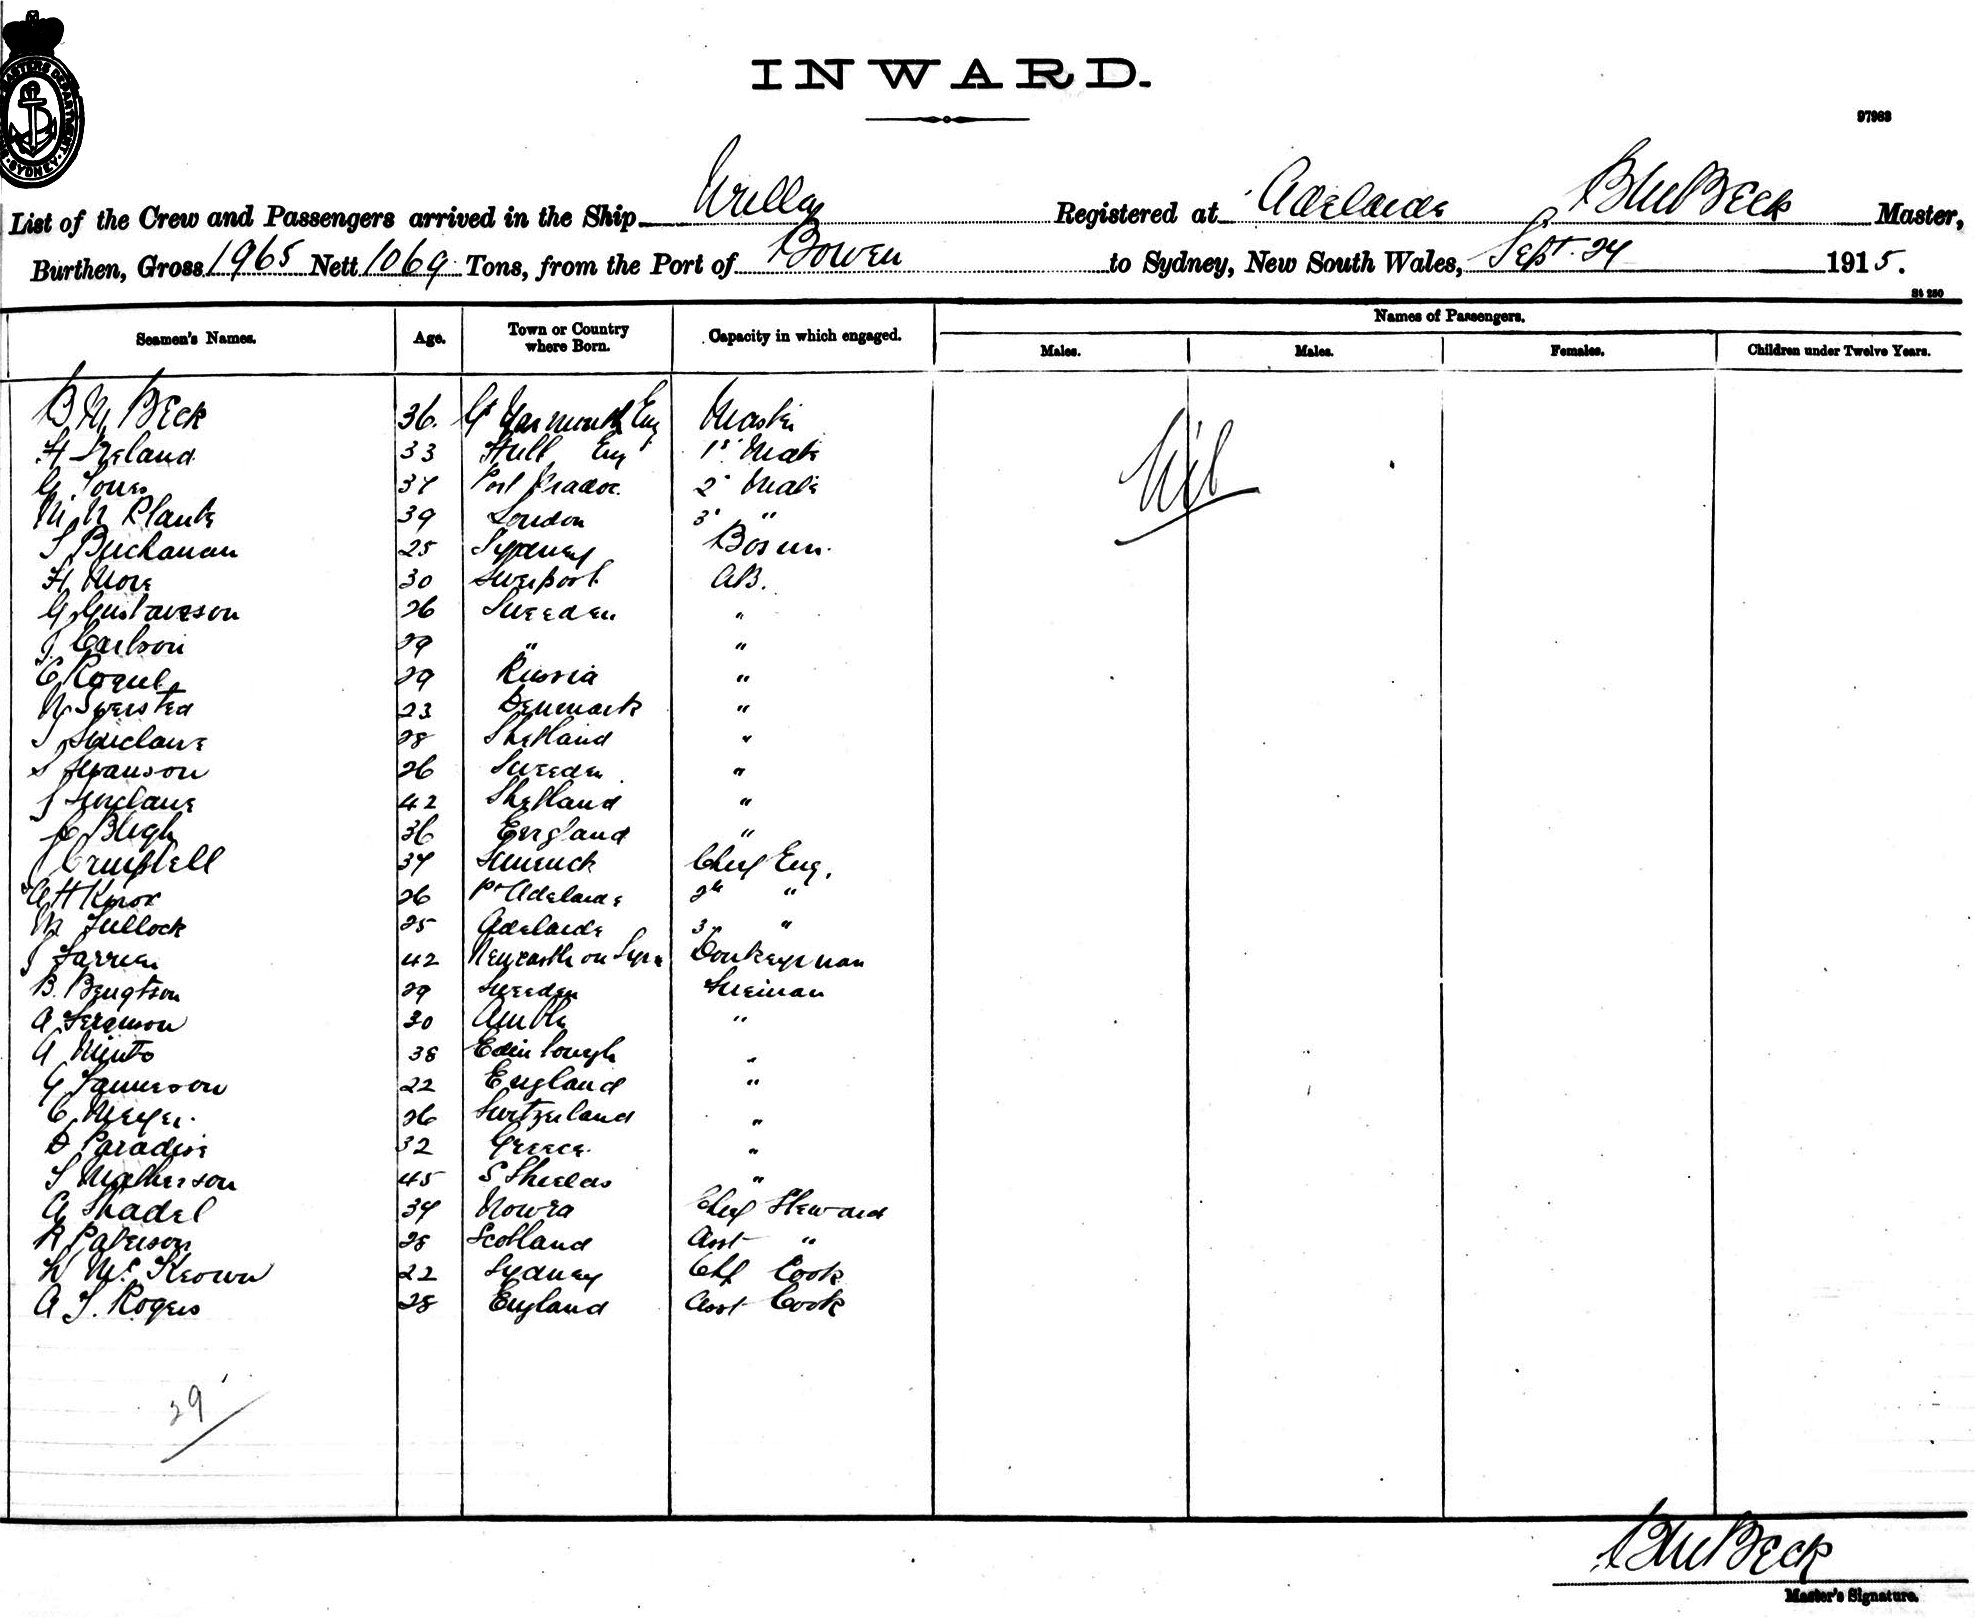 MASTERS DEPARTMENT SYDNEY
INWARD.
97963
List of the Crew and Passengers arrived in the Ship Urilla Registered at Adelaide B M Beck Master,
Burthen, Gross 1965 Nett 1069 Tons, from the Port of Bowen to Sydney, New South Wales, Sept. 24 1915.
St 250
Seamen's Names. Age. Town or Country where Born. Capacity in which engaged. Names of Passengers.
Males. Males. Females. Children under Twelve Years.
B M Beck 36. Gt Yarmouth Eng Master
H Ireland 33 Hull Eng 1st Mate
G. Jones 37 Port 2d Mate
London 39 3d "
S Buchanan 25 Sydney Bosun.
H More 30 Liverpool AB.
G Gustaveson 26 Sweeden "
J. Carlson 29 " "
C 29 Russia "
N 23 Denmark "
J Sinclaire 28 Shetland "
S Swanson 26 Sweeden "
J Sinclaire 42 Shetland "
Bligh 36 England "
J Campbell 34 Limerick Chief Eng.
A H Knox 26 Pt Adelaide 2nd "
Tullock 25 Adelaide 3. "
J Farrier 42 Newcastle on Tyne Donkeyman
B. Bengtson 29 Sweeden Fireman
A Ferguson 30 Amble "
A Minto 38 Edinbourgh "
G Jammeson 22 England "
C Meyer. 26 Switzerland "
D Paradise 32 Greece. "
Matherson 45 S Shields "
A Shadel 34 Nowra Chief Steward
R Paterson 28 Scotland Asst "
McKeown 22 Sydney Chf Cook
A J. Rogers 28 England Asst Cook
Nil
29
B M Beck
Master's Signature.